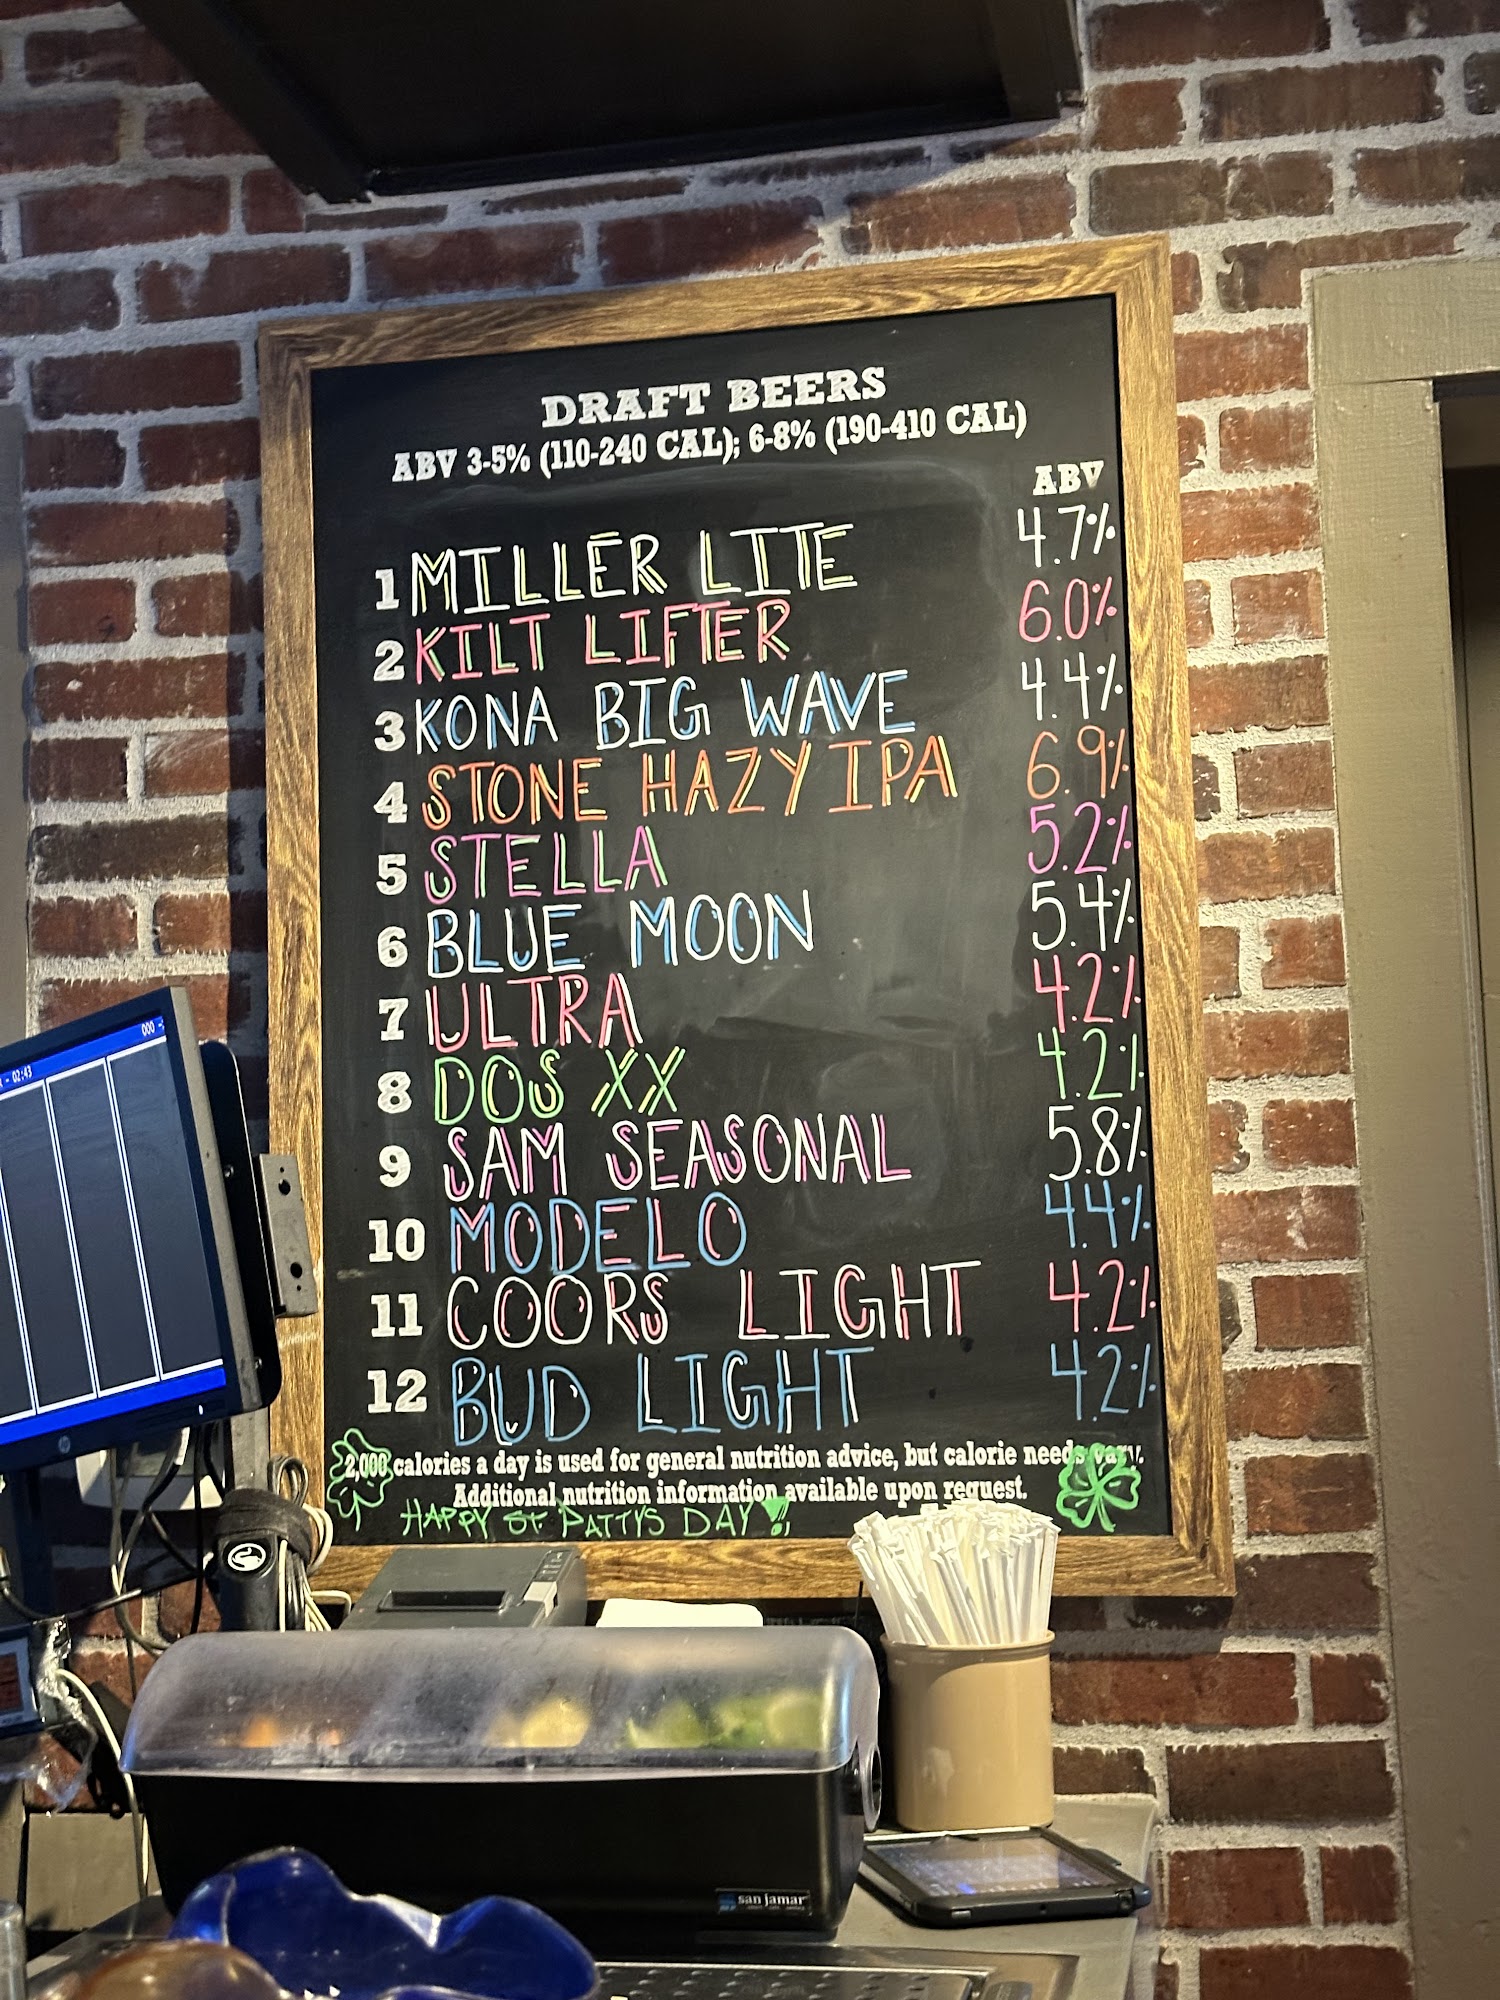 DRAFT BEERS
ABV 3-5% (110-240 CAL); 6-8% (190-410 CAL)
ABV
1 MILLER LITE 4.7%
2 KILT LIFTER 6.0%
3 KONA BIG WAVE 4.4%
4 STONE HAZY IPA 6.9%
5 STELLA 5.2%
6 BLUE MOON 5.4%
7 ULTRA 4.2%
8 DOS XX 4.2%
9 SAM SEASONAL 5.8%
10 MODELO 4.4%
11 COORS LIGHT 4.2%
12 BUD LIGHT 4.2%
2,000 calories a day is used for general nutrition advice, but calorie needs vary.
Additional nutrition information available upon request.
HAPPY ST. PATTYS DAY !!
02:43
000
hp
san jamar